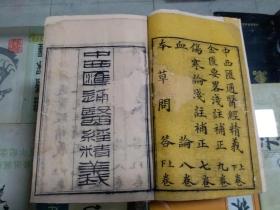 中西匯通醫經精義 上下卷
金匱要畧淺註補正 九卷
傷寒論淺註補正 七卷
血論 八卷
本草問答 上下卷
中西匯通醫經精義